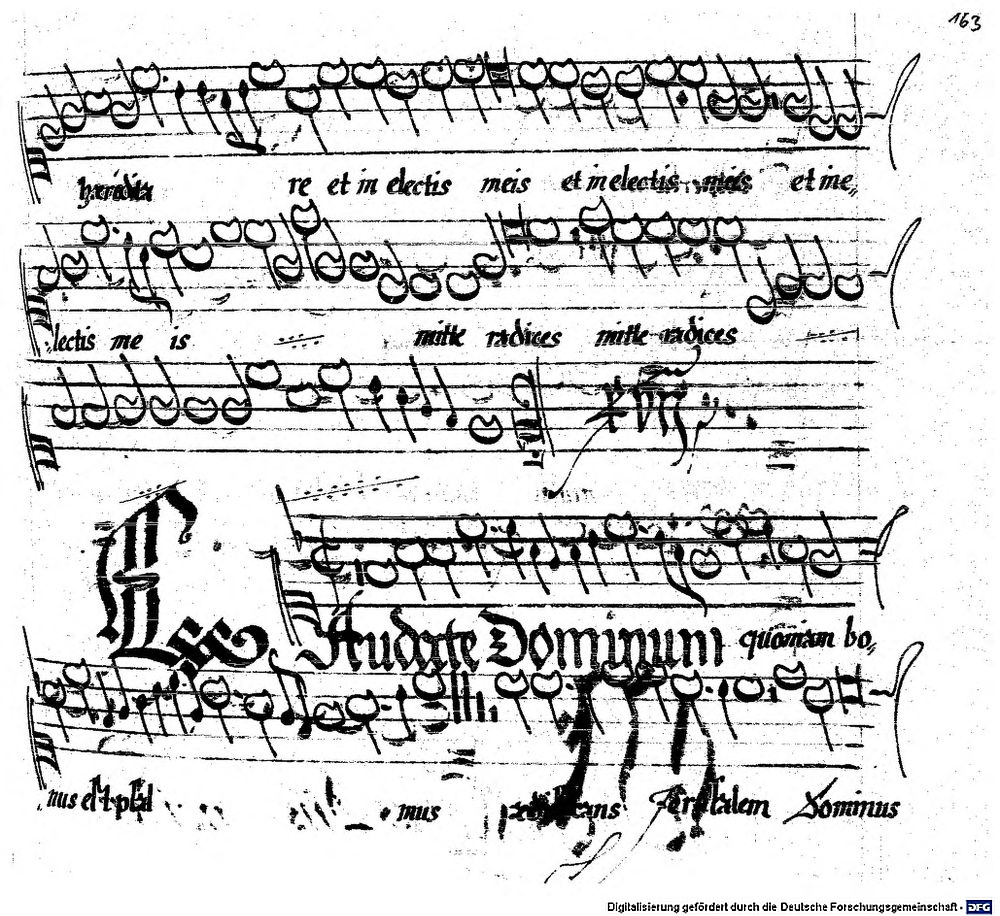 163
hæredita re et in electis meis et in electis meis et in e„
lectis me is mitte radices mitte radices
LAudate Dominum quoniam bo„
nus est psal mus ædificans Jerusalem Dominus
Digitalisierung gefördert durch die Deutsche Forschungsgemeinschaft - DFG